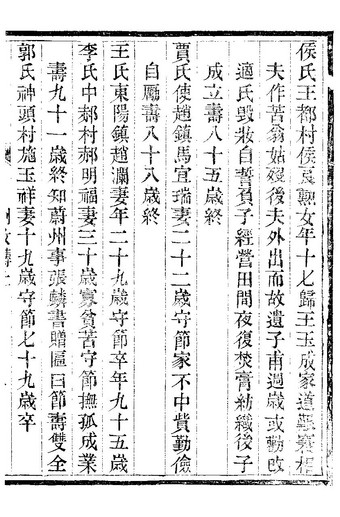 侯氏王都村侯夏勲女年十七歸王玉成家道艱窘相
夫作苦翁姑歿後夫外出而故遺子甫過歲或勸改
適氏毀妝自誓負子經營田間夜復焚膏紡織後子
成立壽八十五歲終
賈氏使趙鎮馬宜瑞妻二十二歲守節家不中貲勤儉
自勵壽八十八歲終
王氏東陽鎮趙瀾妻年二十九歲守節卒年九十五歲
李氏中郝村郝明福妻三十歲寡貧苦守節撫孤成業
壽九十一歲終知蔚州事張麟書贈匾曰節壽雙全
郭氏神頭村施玉祥妻十九歲守節七十九歲卒